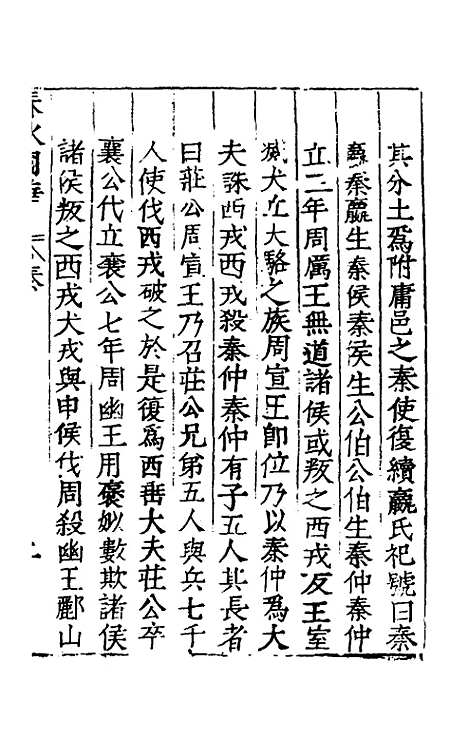 其分土爲附庸邑之秦使復續嬴氏祀號曰秦
嬴秦嬴生秦侯秦侯生公伯公伯生秦仲秦仲
立二年周厲王無道諸侯或叛之西戎反王室
滅犬丘大駱之族周宣王卽位乃以秦仲爲大
夫誅西戎西戎殺秦仲秦仲有子五人其長者
曰莊公周宣王乃召莊公兄弟五人與兵七千
人使伐西戎破之於是復爲西垂大夫莊公卒
襄公代立襄公七年周幽王用褒姒數欺諸侯
諸侯叛之西戎犬戎與申侯伐周殺幽王酈山